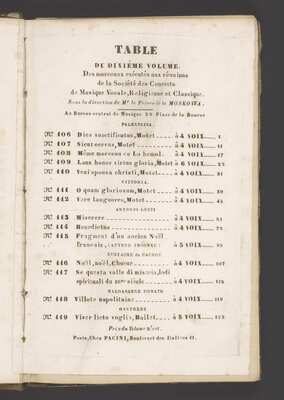 TABLE
DU DIXIÈME VOLUME.
Des morceaux exécutés aux réunions
de la Société des Concerts
de Musique Vocale, Religieuse et Classique.
Sous la direction de Mr. le Prince de la MOSKOWA,
Au Bureau central de Musique 29 Place de la Bourse
PALESTRINA.
No. 106 Dies sanctificatus, Motet à 4 VOIX 1
No. 107 Sicut cervus, Motet à 4 VOIX
No. 108 Même morceau en La bémol à 4 VOIX
No. 109 Laus honor virtus gloria, Motet à 6 VOIX
No. 110 Veni sponsa christi, Motet à 4 VOIX 31
VITTORIA.
No. 111 O quam gloriosum, Motet à 4 VOIX 39
No. 112 Vere languores, Motet à 4 VOIX
ANTONIO LOTTI
No. 113 Miserere à 4 VOIX
No. 114 Benedictus à 4 VOIX
No. 115 Fragment d'un ancien Noël
français, (AUTEUR INCONNU) à 5 VOIX
EUSTACHE DU CAURROY
No. 116 Noël, noël, Chœur à 4 VOIX 107
No. 117 Se questa valle di miseria, lodi
spirituali du siècle à 4 VOIX
BALDASSARE DONATO
No. 118 Villote napolitaine à 4 VOIX 119
No. 119 Viver lieto voglio, Ballet à 5 VOIX
Prix du Volume net.
Paris, Chez PACINI, Boulevart des Italiens 11.